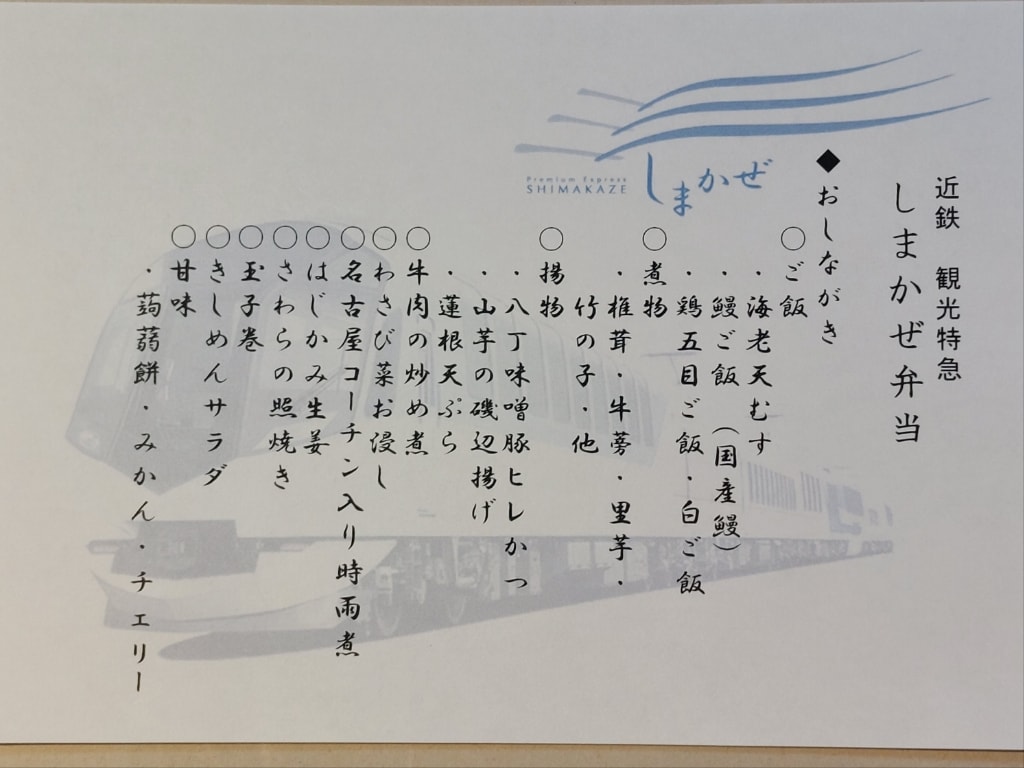 近鉄　観光特急
しまかぜ弁当
Premium Express
SHIMAKAZE
しまかぜ
◆おしながき
○ご飯
・海老天むす
・鰻ご飯（国産鰻）
・鶏五目ご飯・白ご飯
○煮物
・椎茸・牛蒡・里芋・
竹の子・他
○揚物
・八丁味噌豚ヒレかつ
・山芋の磯辺揚げ
・蓮根天ぷら
○牛肉の炒め煮
○わさび菜お浸し
○名古屋コーチン入り時雨煮
○はじかみ生姜
○さわらの照焼き
○玉子巻
○きしめんサラダ
○甘味
・蒟蒻餅・みかん・チェリー